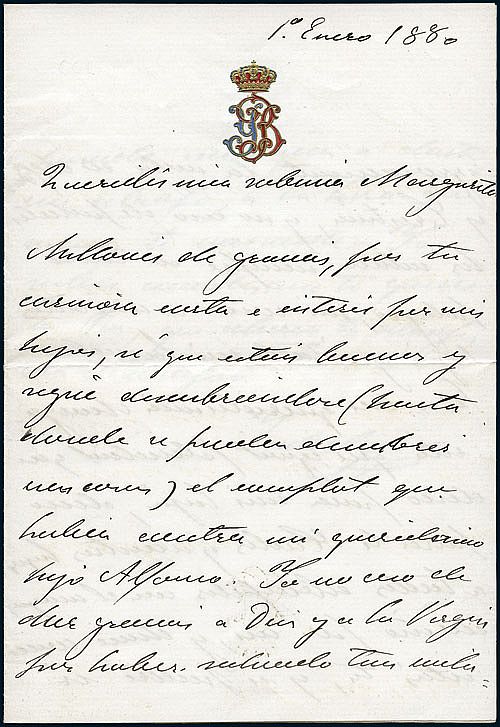 1º Enero 1880
Queridísima sobrina Margarita
Millones de gracias, por tu
cariñosa carta e interés por mis
hijos, sé que estais buenos y
sigue descubriendose (hasta
donde se pueden descubrir
esas cosas) el complot que
habia contra mi queridisimo
hijo Alfonso. Yo no ceso de
dar gracias a Dios y a la Virgen
por haber salvado tan mila-